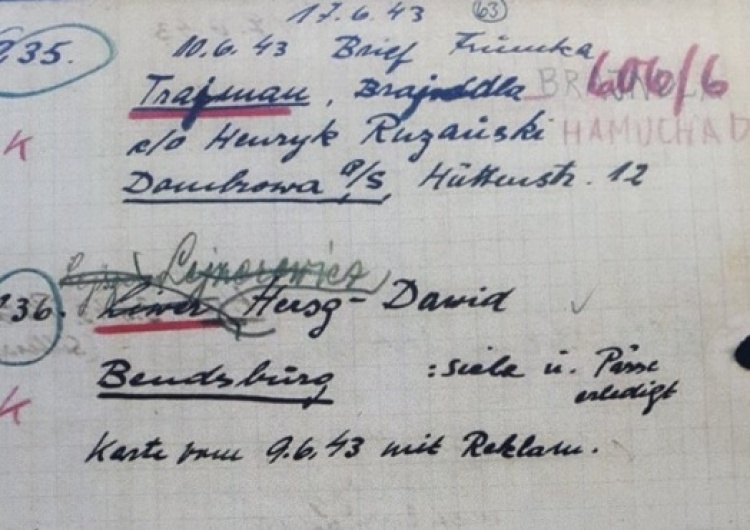 17.6.43 63
235. 10.6.43 Brief Frumka
Trajman, Brajndla 606/6
K c/o Henryk Ruzański HAMUCHA
Dombrowa O/S, Hüttenstr. 12
Lejzorowicz
136. Hersz-Dawid
Bendsburg : siehe u. Pässe
erledigt
K
Karte vom 9.6.43 mit Reklam.